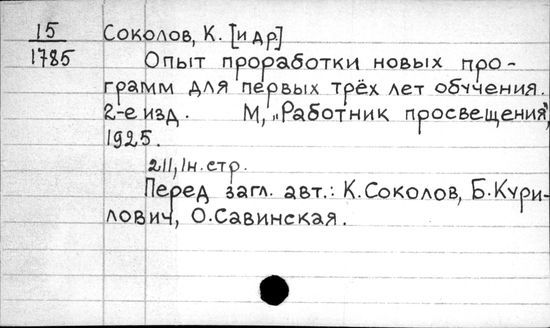 15 Соколов, К. [и др]
1785 Опыт проработки новых про-
грамм для первых трёх лет обучения.
2-е изд. М, „Работник просвещения",
1925.
211, 1н. стр.
Перед загл. авт.: К.Соколов, Б.Кури-
лович, О.Савинская.